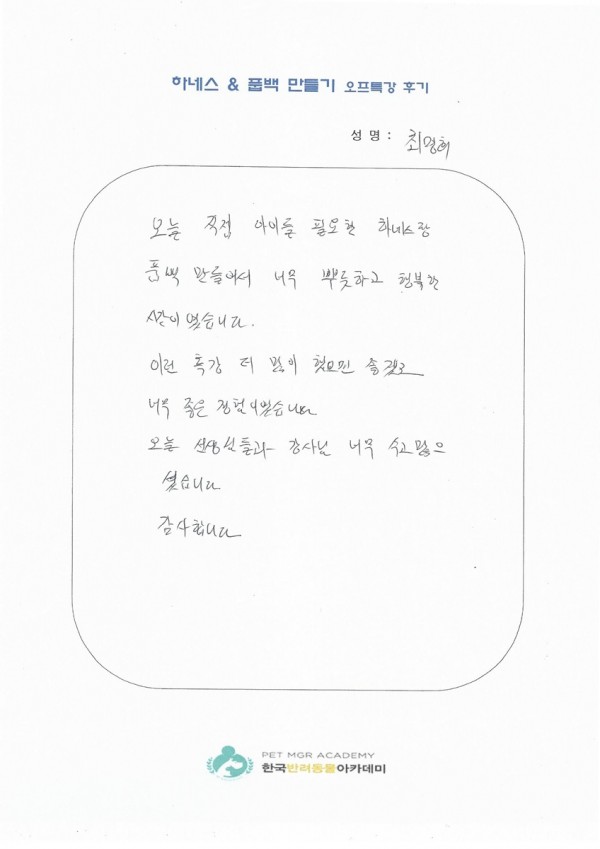 하네스 & 풉백 만들기 오프특강 후기
성 명 : 최명희
오늘 직접 아이들 필요한 하네스랑
풉백 만들어서 너무 뿌듯하고 행복한
시간이 였습니다.
이런 특강 더 많이 했으면 좋겠고
너무 좋은 경험이였습니다
오늘 선생님들과 강사님 너무 수고많으
셨습니다
감사합니다
PET MGR ACADEMY
한국반려동물아카데미